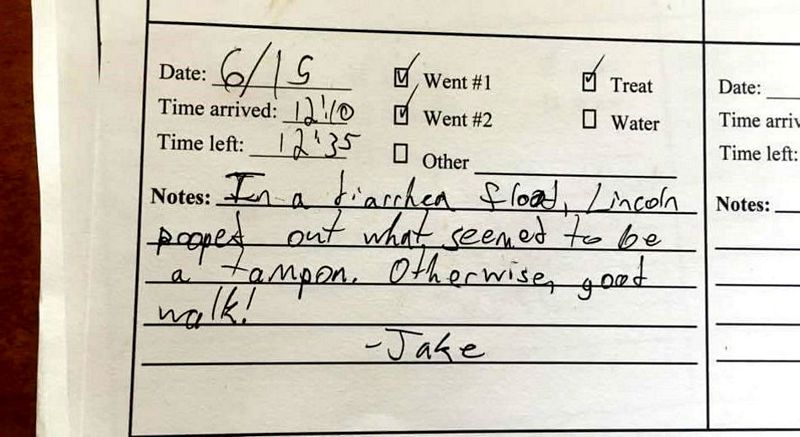 Date: 6/15
☑ Went #1
☑ Treat
Time arrived: 12:10
☑ Went #2
☐ Water
Time left: 12:35
☐ Other
Notes: In a diarrhea flood, Lincoln
pooped out what seemed to be
a tampon. Otherwise, good
walk!
-Jake
Date:
Time arriv
Time left:
Notes: